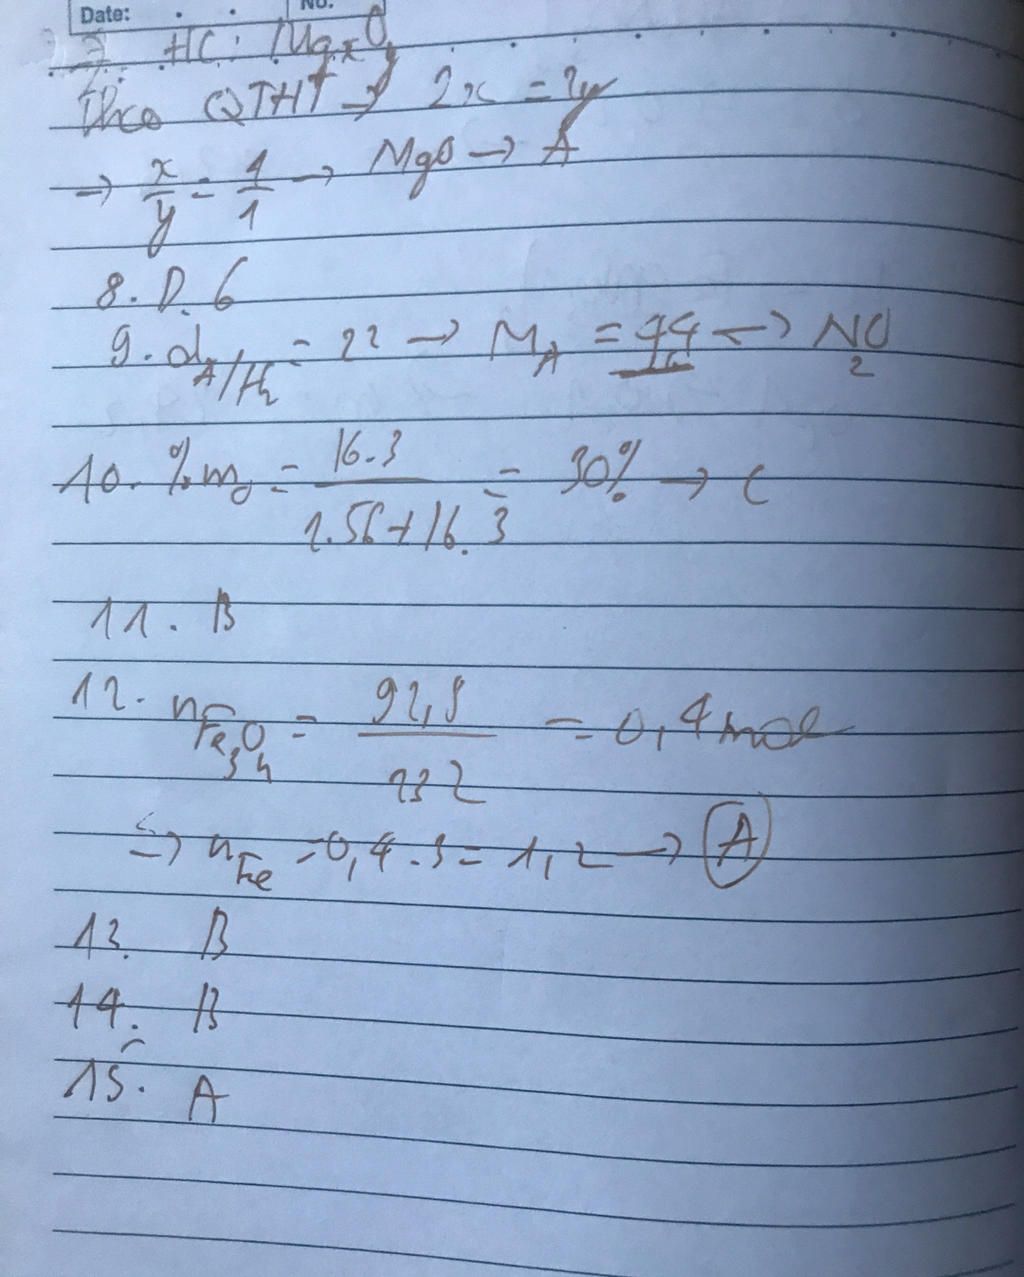 Date: No.
7. HC: MgxOy
Theo QTHT → 2x = 2y
→ x/y = 1/1 → MgO → A
8. D. 6
9. dA/H2 = 22 → MA = 44 → NO2
10. %mO = 16.3 / 2.56+16.3 = 30% → C
11. B
12. nFe3O4 = 92,8 / 232 = 0,4 mol
=> nFe = 0,4 . 3 = 1,2 → A
13. B
14. B
15. A